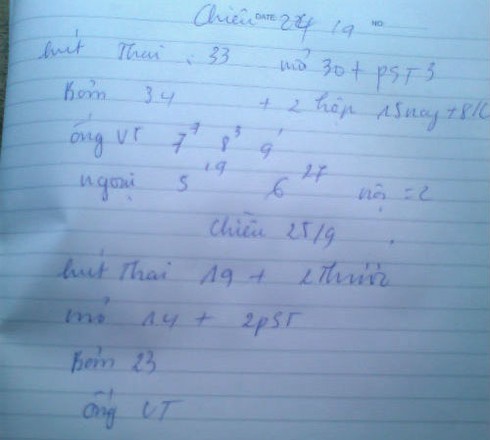 Chiều DATE 24/9 NO.
hút Thai : 33 mổ 30 + pST 3
Bơm 34 + 2 hộp 15 nay + 8/
ống VT 7⁷ 8³ 9¹
ngoại 5¹⁹ 6²⁷ nội = 2
Chiều 25/9
hút Thai 19 + 2 Thước
mổ 14 + 2pST
Bơm 23
ống VT